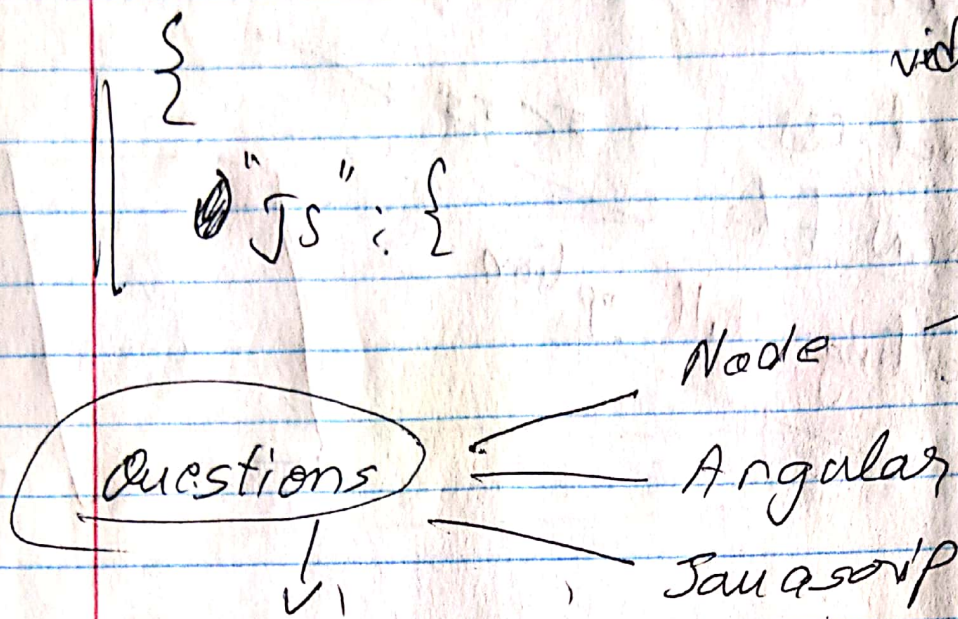 {
vid
"Js" : {
Node
Questions
Angular
Javascrip